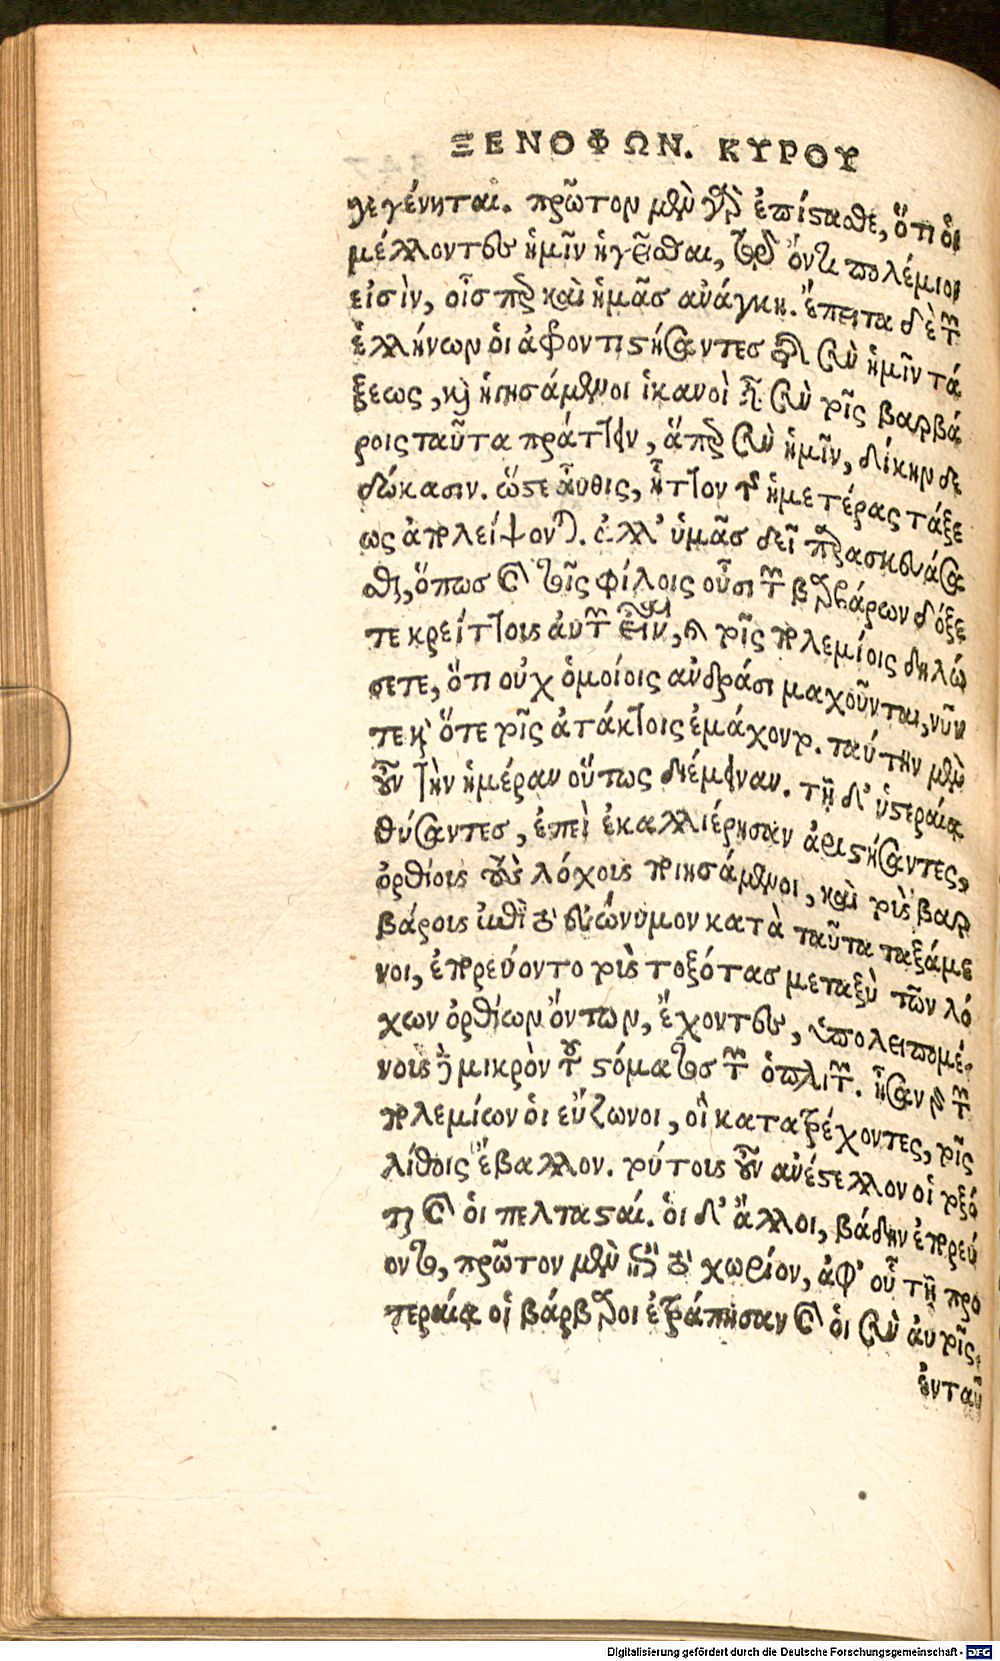 ΞΕΝΟΦΩΝ. ΚΥΡΟΥ
γεγένηται. πρῶτον μὲν γὰρ ἐπίστασθε, ὅτι οἱ
μέλλοντες ἡμῖν ἡγεῖσθαι, τῷ ὄντι πολέμιοι
εἰσὶν, οἷσπερ καὶ ἡμᾶς ἀνάγκη. ἔπειτα δὲ τῶν
ἑλλήνων οἱ ἀφροντιστήσαντες τῆς σὺν ἡμῖν τά
ξεως, καὶ ἡγησάμενοι ἱκανοὶ εἶναι σὺν τοῖς βαρβά
ροις ταῦτα πράττειν, ἅπερ σὺν ἡμῖν, δίκην δε
δώκασιν. ὥστε αὖθις, ἧττον τῆς ἡμετέρας τάξε
ως ἀπολείψονται. ἀλλ' ὑμᾶς δεῖ παρασκευάσα
σθαι, ὅπως καὶ τοῖς φίλοις οὖσι τῶν βαρβάρων δόξε
τε κρείττους αὐτῶν εἶναι, καὶ τοῖς πολεμίοις δηλώ
σετε, ὅτι οὐχ ὁμοίοις ἀνδράσι μαχοῦνται, νῦν
τε καὶ ὅτε τοῖς ἀτάκτοις ἐμάχοντο. ταύτην μὲν
οὖν τὴν ἡμέραν οὕτως διέμειναν. τῇ δ' ὑστεραίᾳ
θύσαντες, ἐπεὶ ἐκαλλιέρησαν ἀριστήσαντες,
ὀρθίους τοὺς λόχους ποιησάμενοι, καὶ τοὺς βαρ
βάρους ἐπὶ τὸ εὐώνυμον κατὰ ταῦτα ταξάμε
νοι, ἐπορεύοντο τοὺς τοξότας μεταξὺ τῶν λό
χων ὀρθίων ὄντων, ἔχοντες, ὑπολειπομέ
νους δὲ μικρὸν τοῦ στόματος τῶν ὁπλιτῶν. ἦσαν γὰρ τῶν
πολεμίων οἱ εὔζωνοι, οἳ κατατρέχοντες, τοῖς
λίθοις ἔβαλλον. τούτους οὖν ἀνέστελλον οἱ τοξό
ται καὶ οἱ πελτασταί. οἱ δ' ἄλλοι, βάδην ἐπορεύ
οντο, πρῶτον μὲν ἐπὶ τὸ χωρίον, ἀφ' οὗ τῇ προ
τεραίᾳ οἱ βάρβαροι ἐτράπησαν καὶ οἱ σὺν αὐτοῖς.
ἐνταῦ
Digitalisierung gefördert durch die Deutsche Forschungsgemeinschaft - DFG